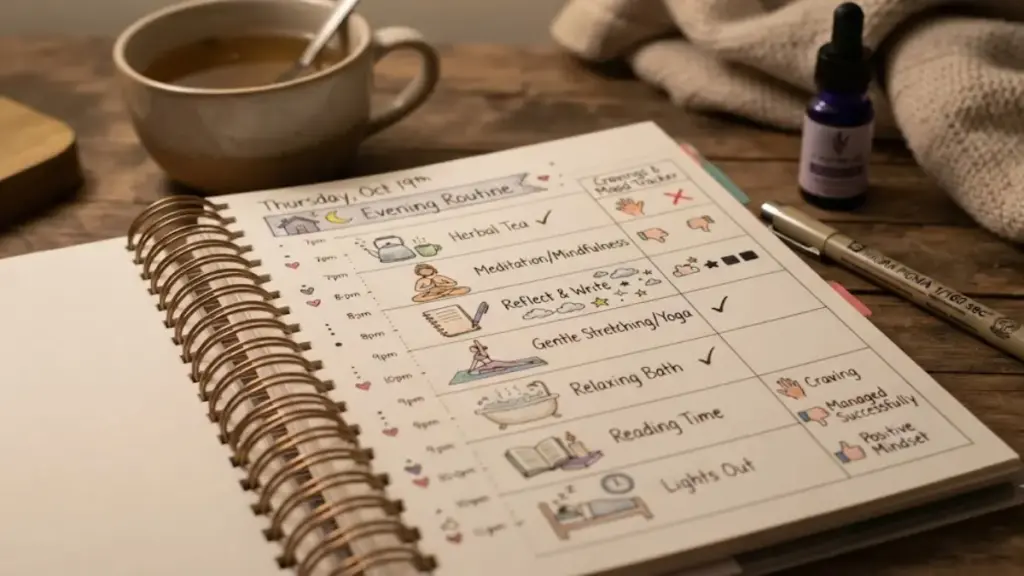 Thursday, Oct 19th
Evening Routine
Cravings &
Mood Tracker
7pm
Herbal Tea ✓
7pm
Meditation/Mindfulness
7pm
8pm
Reflect & Write
8pm
Gentle Stretching/Yoga ✓
9pm
10pm
Relaxing Bath ✓
9pm
Reading Time
9pm
Lights Out
Craving
Managed
Successfully
Positive
Mindset